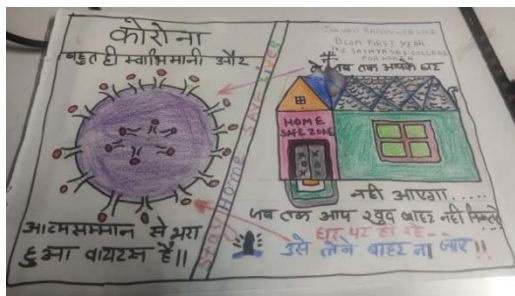 कोरोना
बहुत ही स्वाभिमानी और
आत्मसम्मान से भरा
हुआ वायरस है।।
STAY HOME SAVE LIVES
B.COM FIRST YEAR
FOR WOMEN
तब तक आपके घर
HOME
SAFE ZONE
नही आएगा.....
जब तक आप खुद बाहर नही निकलते
घर पर ही रहे...
उसे लेने बाहर ना जाए!!